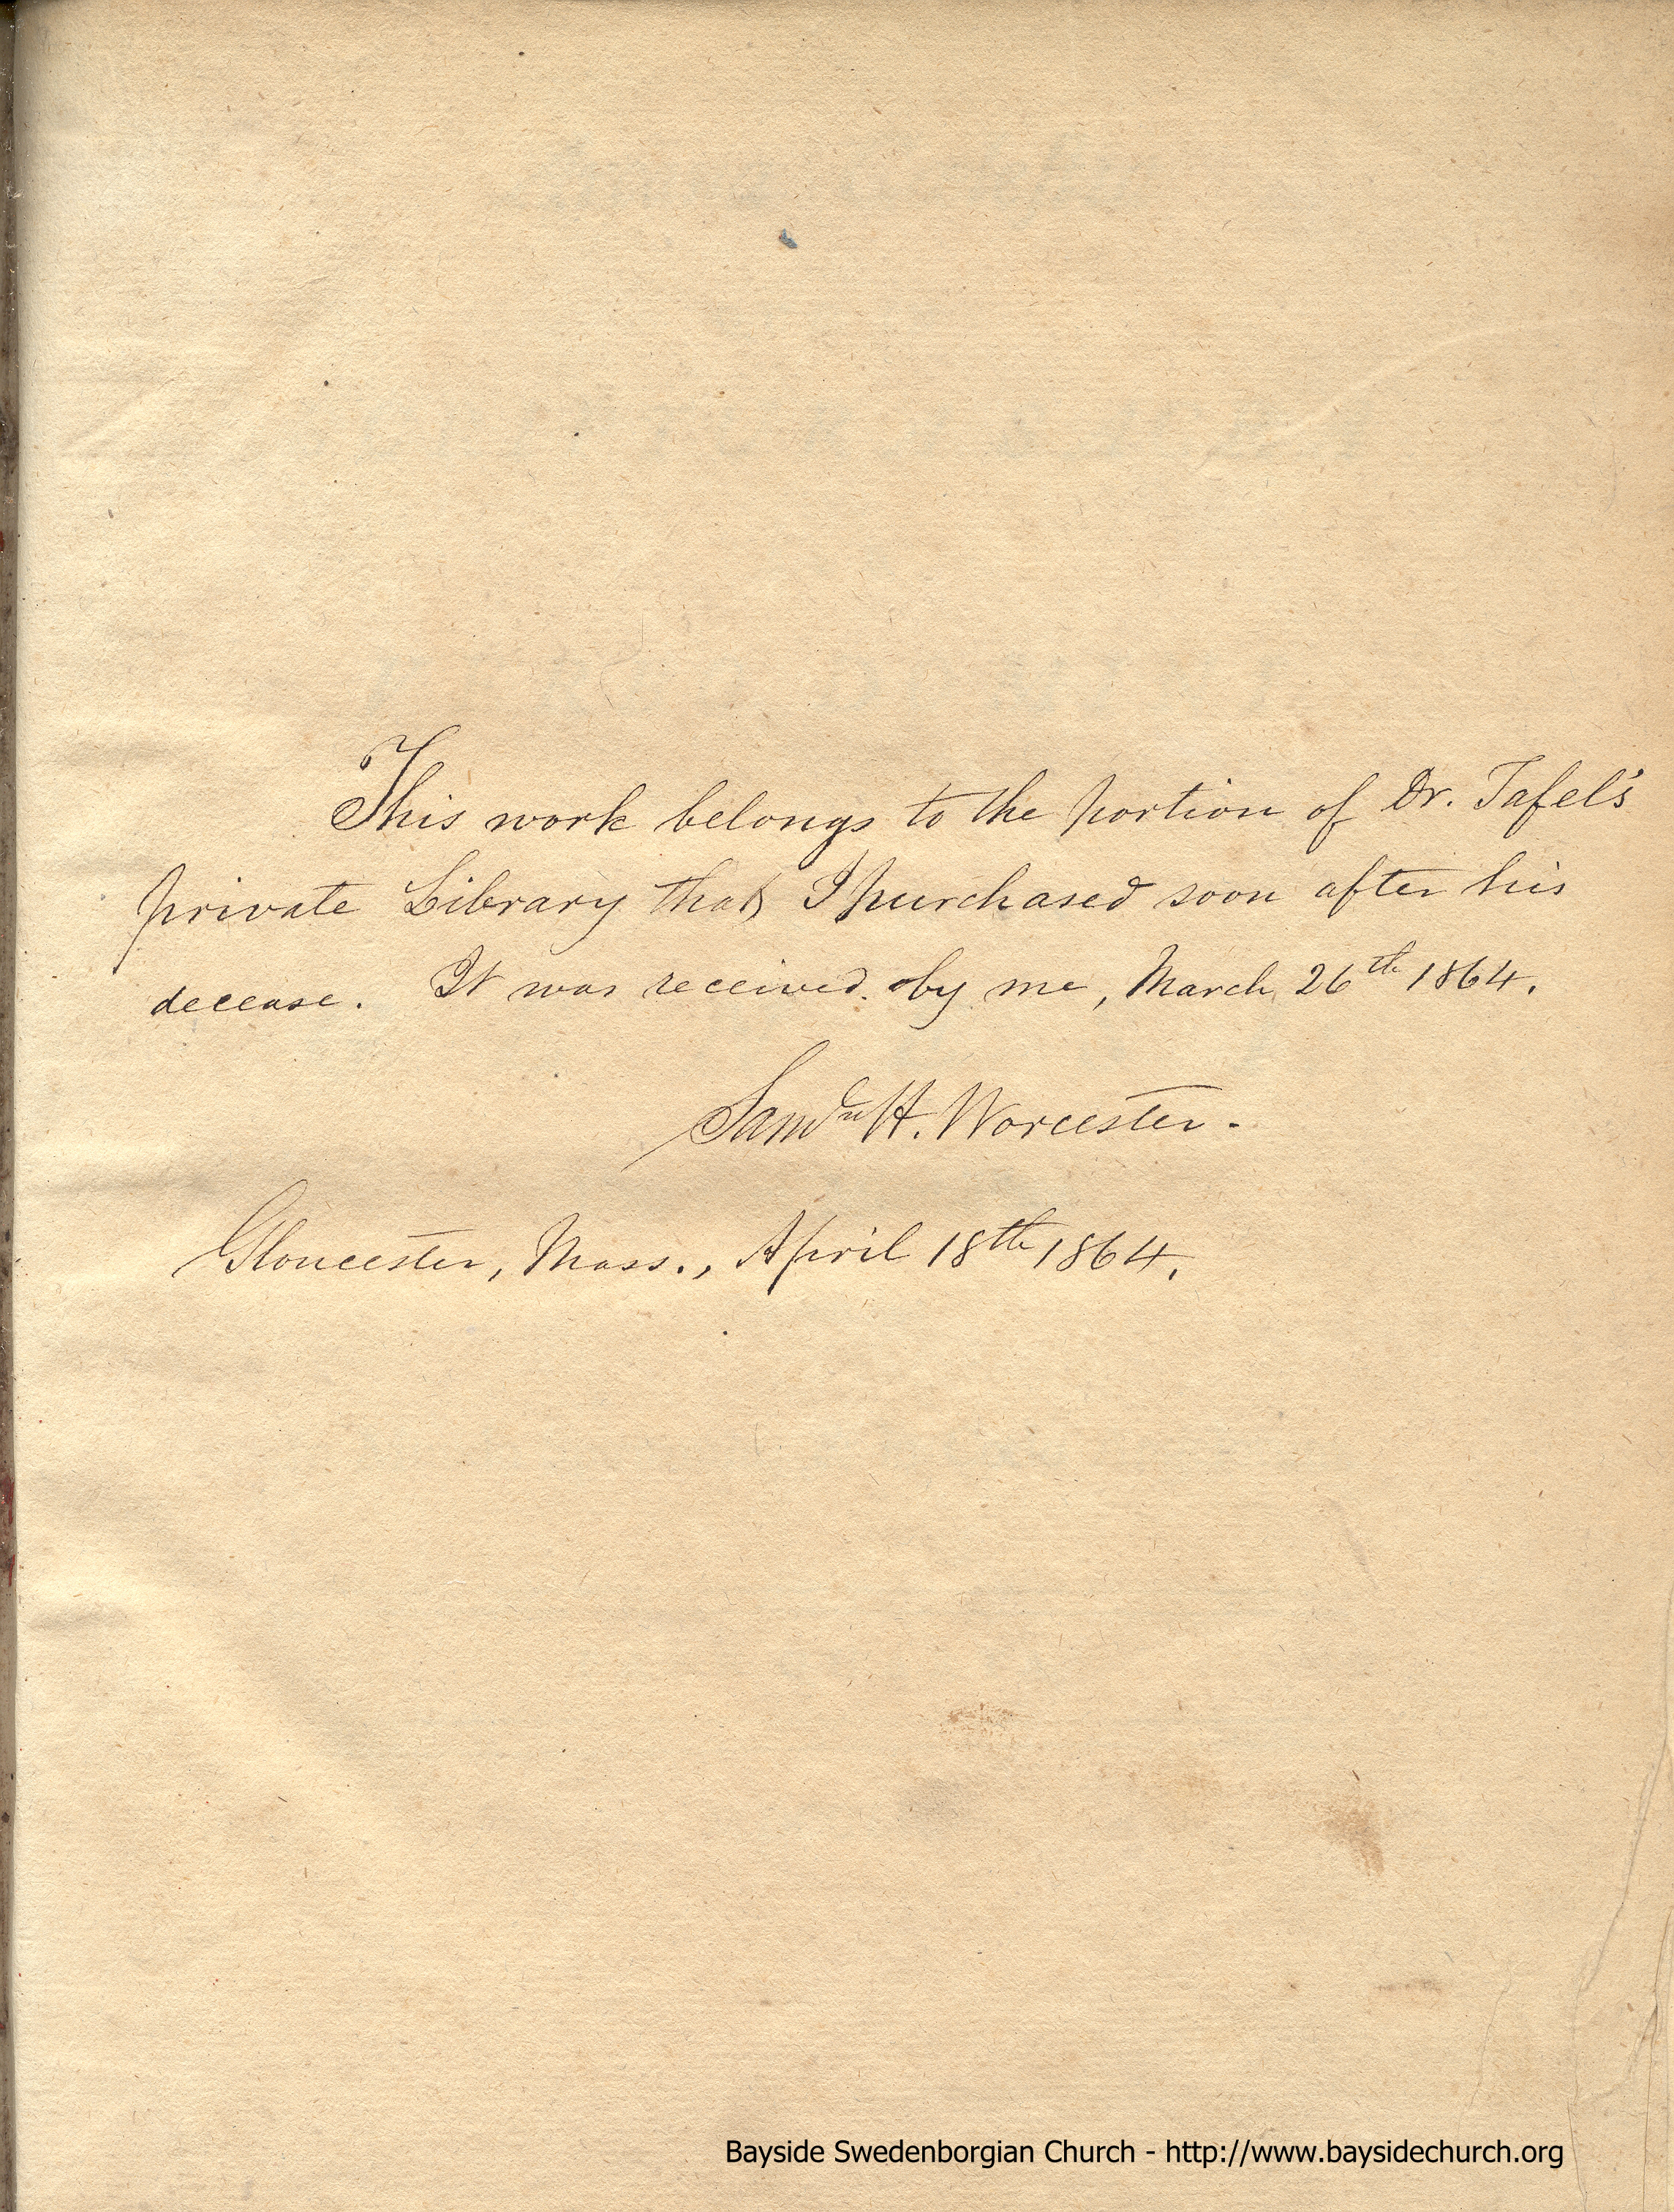 This work belongs to the portion of Dr. Tafel's
private Library that I purchased soon after his
decease. It was received by me, March 26th 1864.
Saml H. Worcester.
Gloucester, Mass., April 18th 1864.
Bayside Swedenborgian Church - http://www.baysidechurch.org